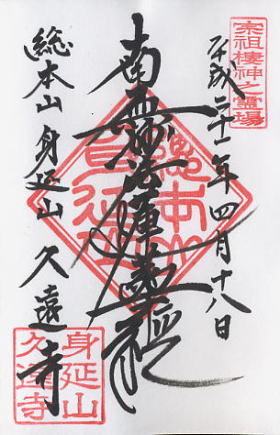 宗祖棲神之霊場
平成二十一年四月十八日
南無妙法蓮華経
総本山
身延山
総本山 身延山 久遠寺
身延山
久遠寺